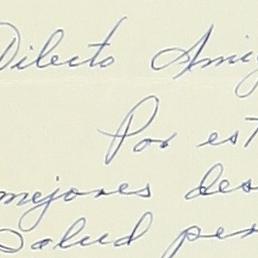 Dilecto Ami
Por est
mejores des
Salud per